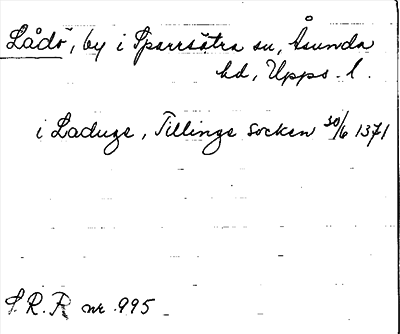 Lådö, by i Sparrsätra sn, Åsunda
hd, Upps. l.
i Laduge, Tillinge Socken 30/6 1371
S.R.P. nr 995